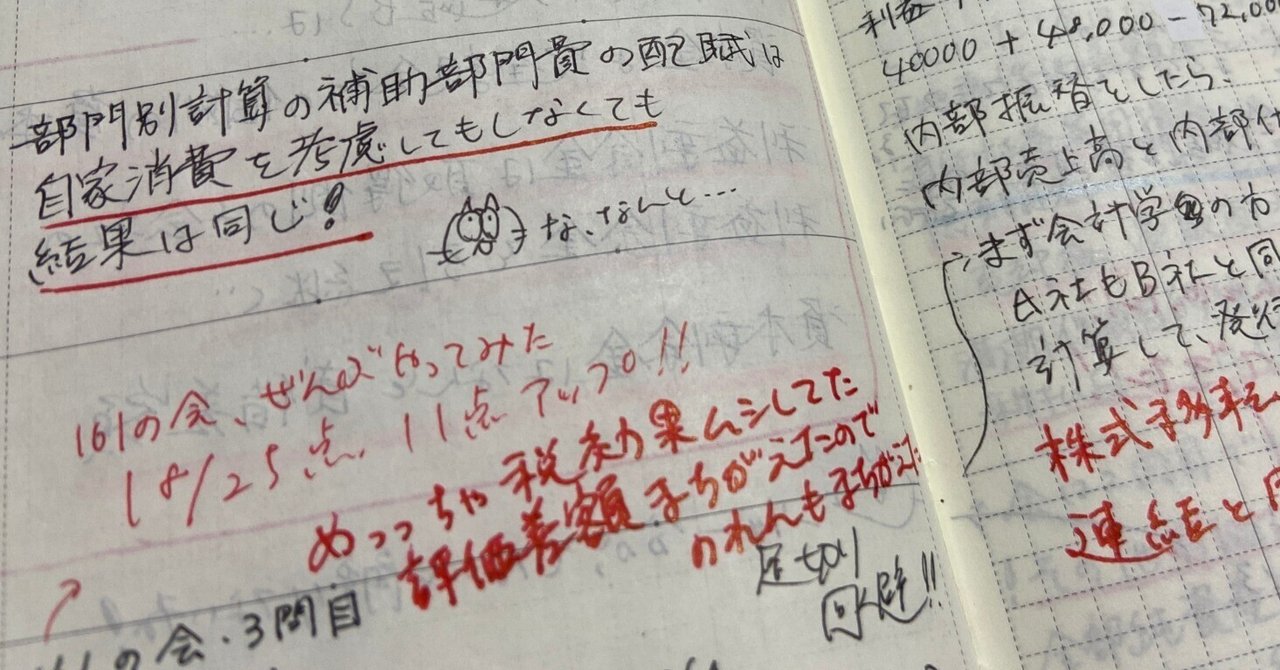 部門別計算の補助部門費の配賦は
自家消費を考慮してもしなくても
結果は同じ!
な、なんと…
161の会、ぜんぶやってみた
18/25点、11点アップ!!
めっっちゃ税効果ムシしてた
評価差額まちがえたので
のれんもまちがえた
足切り
回避!!
の会・3問目
利益
40000 + 48,000 - 72,00
内部振替をしたら、
内部売上高と内部仕
まず会計学の方
A社もB社と同
計算して、発行
株式
連結と同